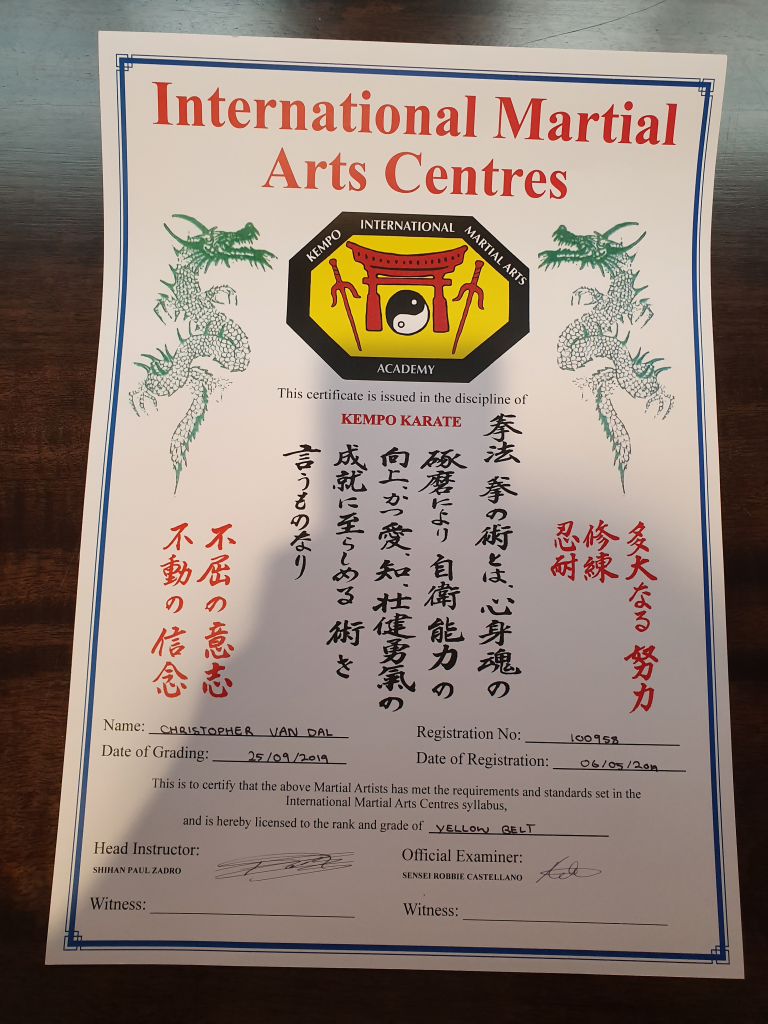 International Martial
Arts Centres
KEMPO INTERNATIONAL MARTIAL ARTS
ACADEMY
This certificate is issued in the discipline of
KEMPO KARATE
拳法 拳の術とは、心身魂の
琢磨により 自衛能力の
向上、かつ愛、知、壮健勇氣の
成就に至らしめる 術を
言うものなり
多大なる 努力
修練
忍耐
不屈の意志
不動の信念
Name: CHRISTOPHER VAN DAL
Registration No: 100958
Date of Grading: 25/09/2019
Date of Registration: 06/05/2019
This is to certify that the above Martial Artists has met the requirements and standards set in the
International Martial Arts Centres syllabus,
and is hereby licensed to the rank and grade of YELLOW BELT
Head Instructor:
SHIHAN PAUL ZADRO
Official Examiner:
SENSEI ROBBIE CASTELLANO
Witness:
Witness: